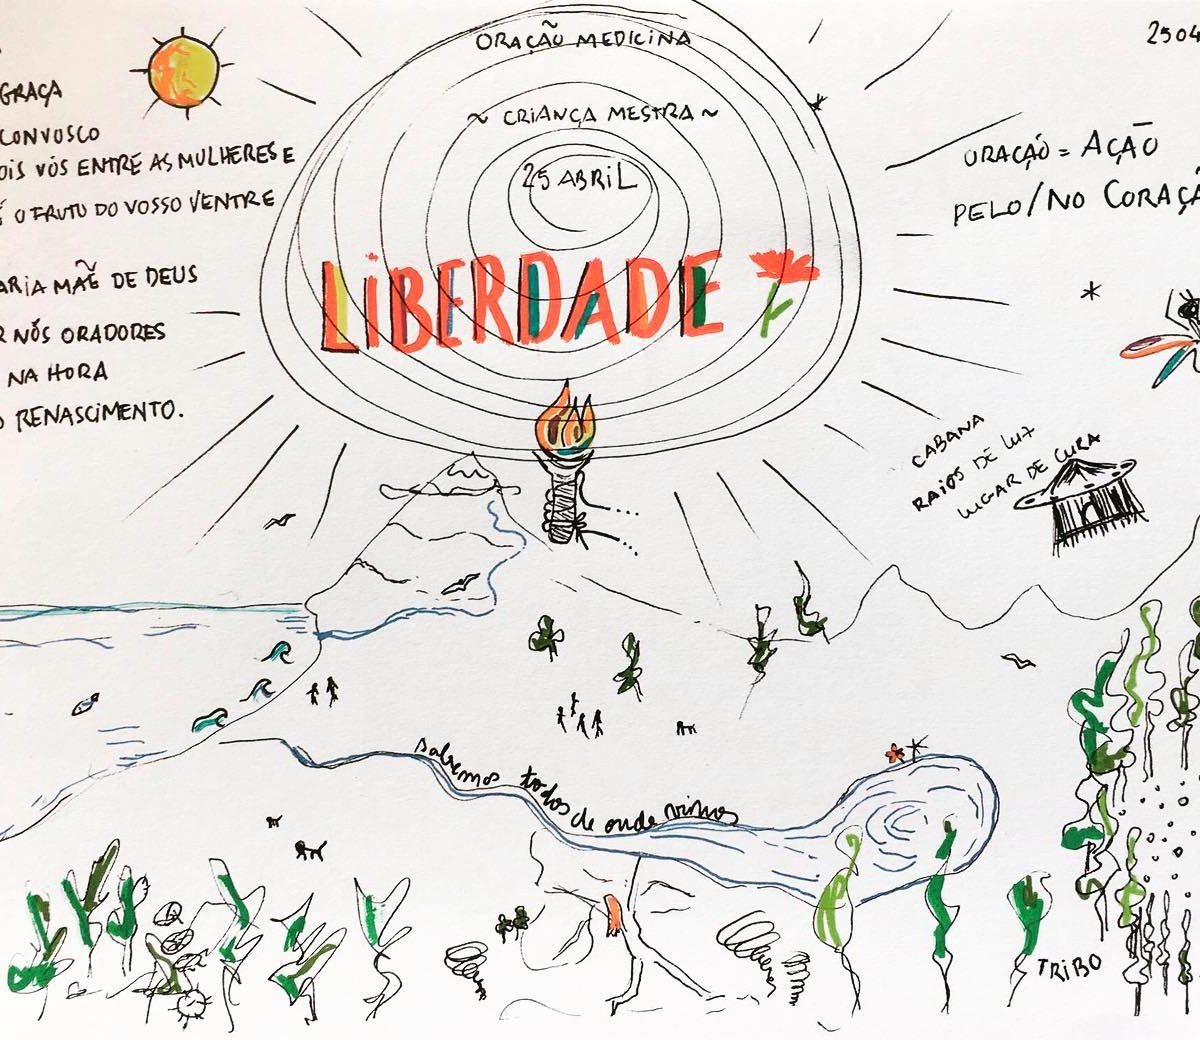 ORAÇÃO MEDICINA
~ CRIANÇA MESTRA ~
25 ABRIL
LIBERDADE
GRAÇA
CONVOSCO
OIS VÓS ENTRE AS MULHERES E
É O FRUTO DO VOSSO VENTRE
ARIA MÃE DE DEUS
R NÓS ORADORES
NA HORA
O RENASCIMENTO.
2504
ORAÇÃO = AÇÃO
PELO/NO CORAÇÃ
CABANA
RAIOS DE LUZ
LUGAR DE CURA
sabemos todos de onde vimos
TRIBO